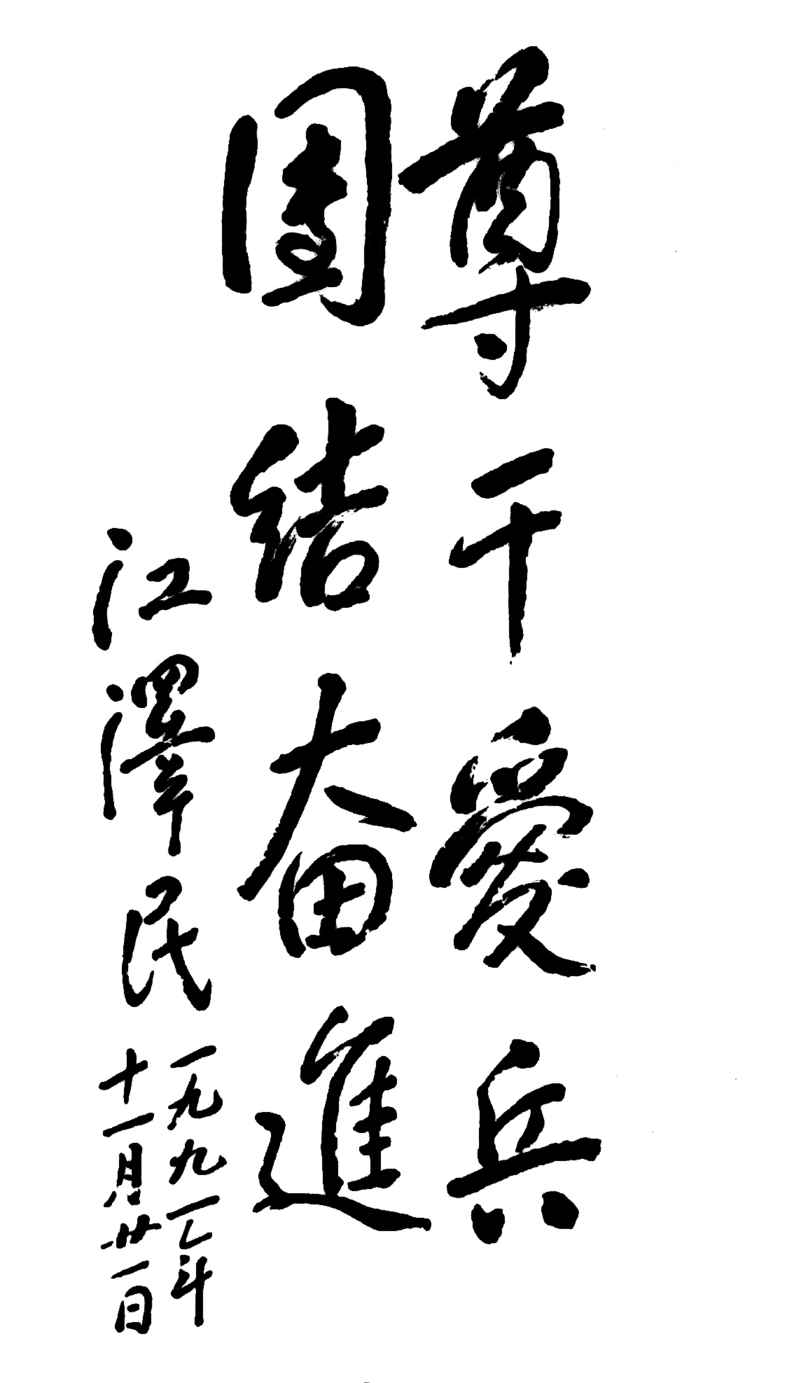 尊干爱兵
团结奋進
江澤民
一九九一年
十一月廿一日